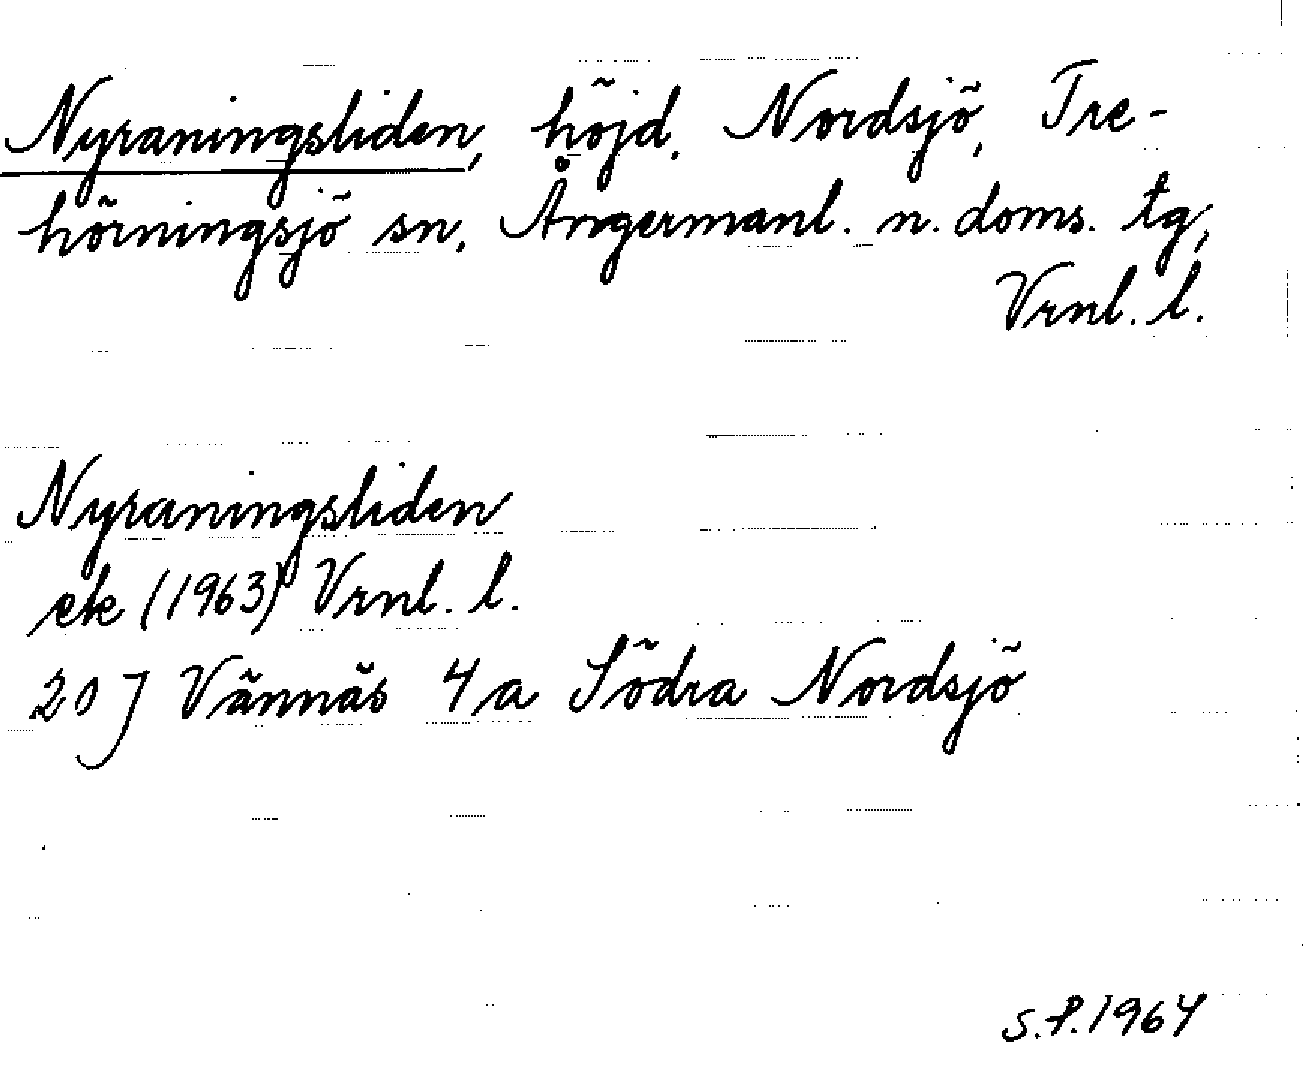 Nyraningsliden, höjd, Nordsjö, Tre-
hörningsjö sn, Ångermanl. n. doms. tg,
Vrnl. l.
Nyraningsliden
ek (1963) Vrnl. l.
20 J Vännäs 4 a Södra Nordsjö
S.P. 1964